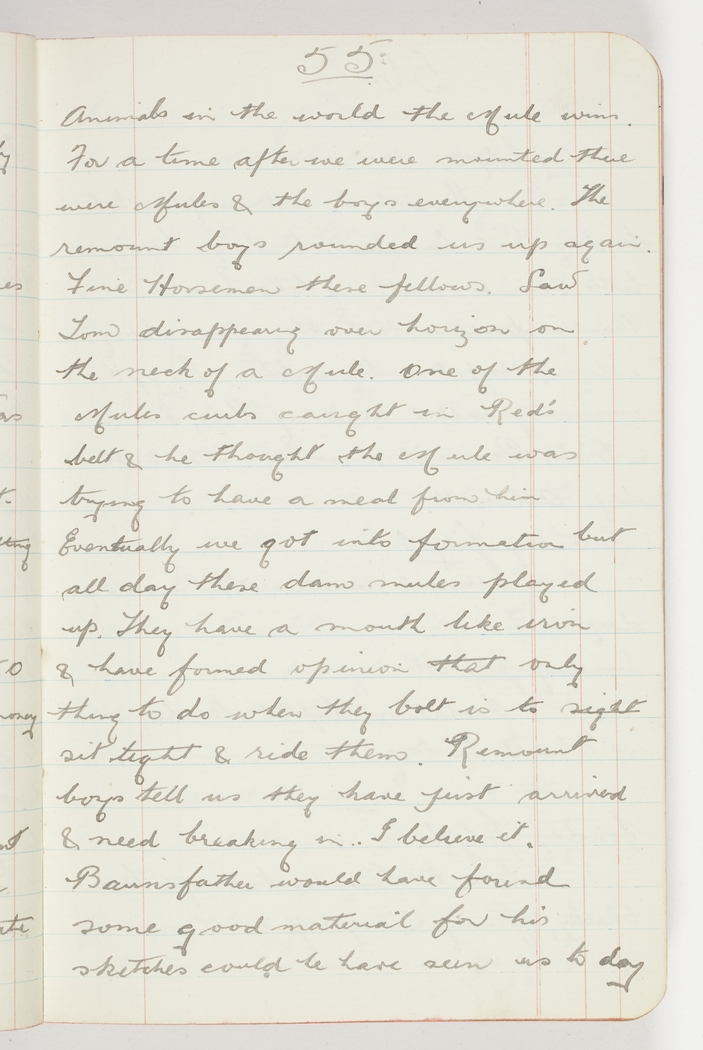 55.
Animals in the world the Mule wins.
For a time after we were mounted there
were Mules & the boys everywhere. The
remount boys rounded us up again.
Fine Horsemen these fellows. Saw
Tom disappearing over horizon on
the neck of a Mule. One of the
Mules curbs caught in Red's
belt & he thought the Mule was
trying to have a meal from him
Eventually we got into formation but
all day these dam mules played
up. They have a mouth like iron
& have formed opinion that only
thing to do when they bolt is to sight
sit tight & ride them. Remount
boys tell us they have just arrived
& need breaking in.. I believe it.
Bairnsfather would have found
some good material for his
sketches could he have seen us to day